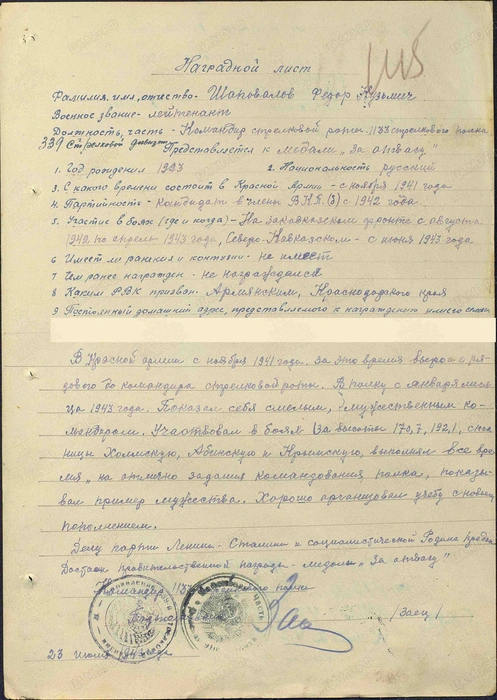 Наградной лист
Фамилия, имя, отчество - Шаповалов Федор Кузьмич
Военное звание - лейтенант
Должность, часть - Командир стрелковой роты 1133 стрелкового полка
339 Стрелковой дивизии
Представляется к медали "За отвагу"
1. Год рождения 1923 2. Национальность русский
3. С какого времени состоит в Красной Армии - с ноября 1941 года
4. Партийность - кандидат в члены ВКП(б) с 1942 года.
5. Участие в боях (где и когда) - На Закавказском фронте с августа
1942 по апрель 1943 года, Северо-Кавказском - с июня 1943 года
6 Имеет ли ранения и контузии - не имеет
7 Чем ранее награжден - не награждался
8 Каким РВК призван - Армянским, Краснодарского края
9 Постоянный домашний адрес, представляемого к награждению и его семьи
В Красной армии с ноября 1941 года. За это время вырос с ря-
дового до командира стрелковой роты. В полку с января меся-
ца 1943 года. Показал себя смелым, мужественным ко-
мандиром. Участвовал в боях за высоты 170,7, 192,1, ста-
ницы Холмскую, Абинскую и Крымскую, выполняя все вре-
мя на отлично задания командования полка, показы-
вал пример мужества. Хорошо организовал учебу с новым
пополнением.
Делу партии Ленина - Сталина и социалистической Родине предан
Достоин правительственной награды - медали "За отвагу"
Командир 1133 полка
/Заец/
23 1943 года